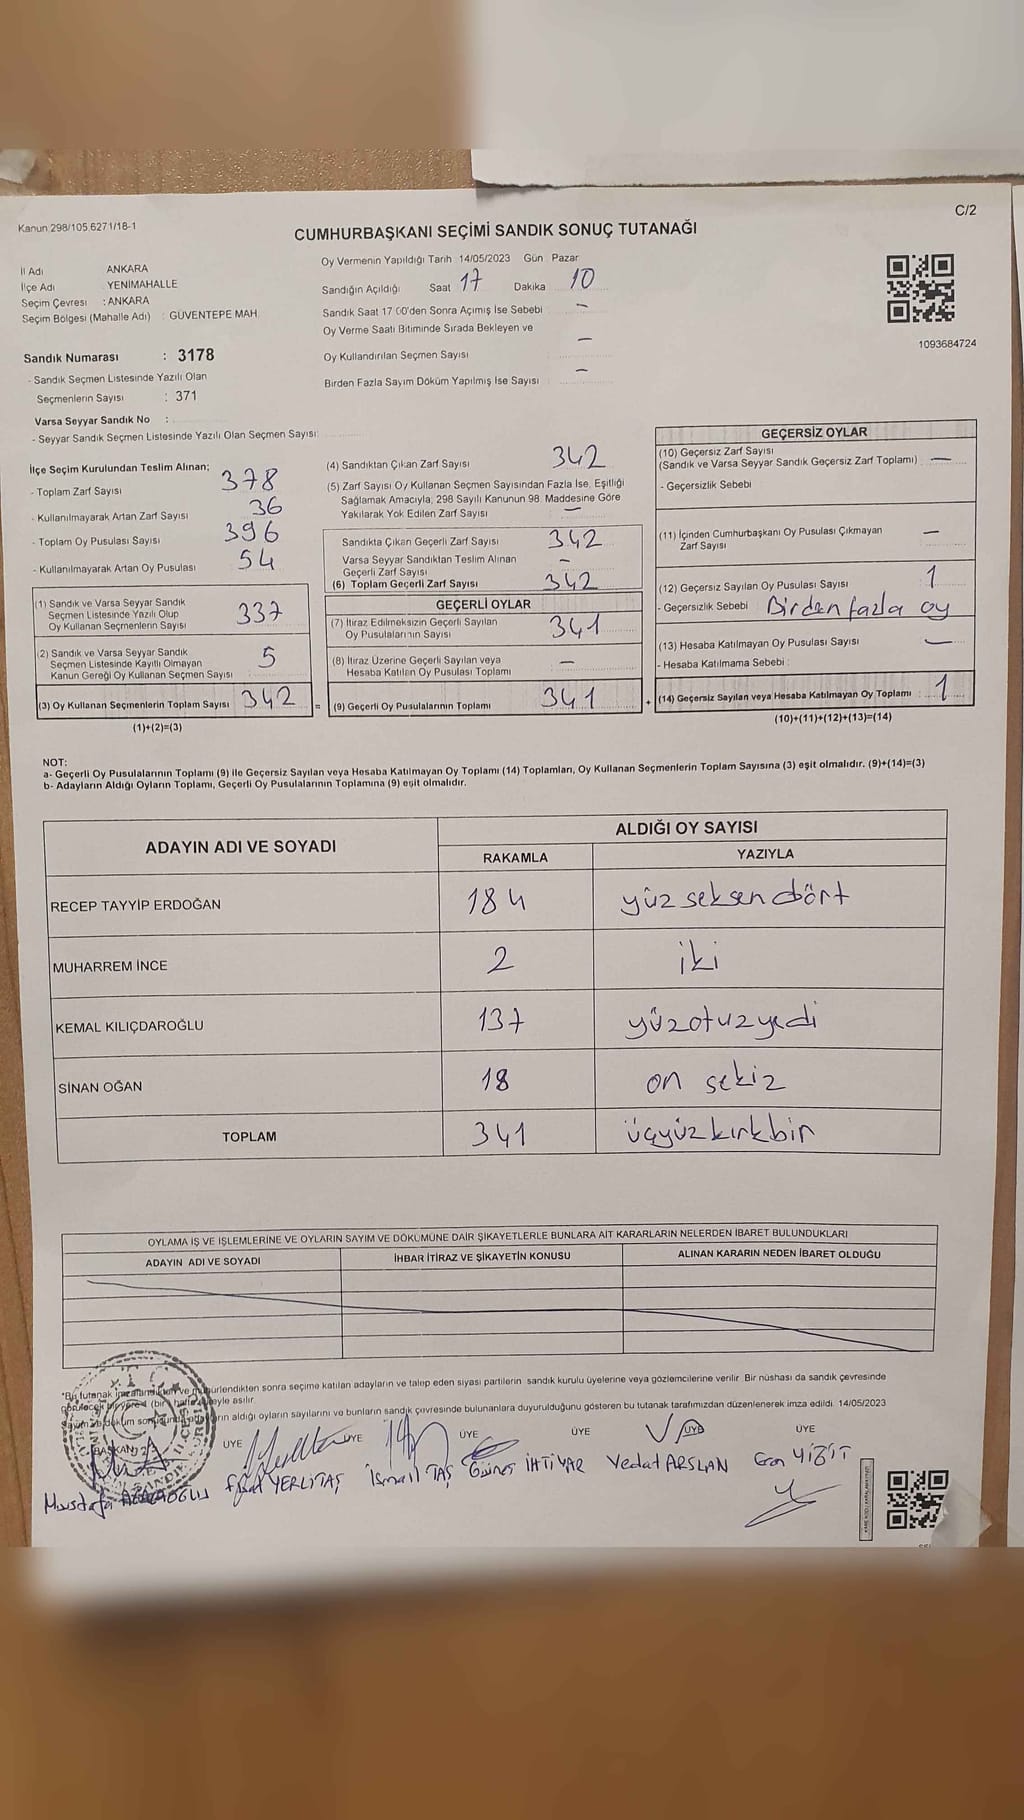 C/2
Kanun 298/105 6271/18-1
CUMHURBAŞKANI SEÇİMİ SANDIK SONUÇ TUTANAĞI
İl Adı ANKARA
İlçe Adı YENİMAHALLE
Seçim Çevresi : ANKARA
Seçim Bölgesi (Mahalle Adı) : GÜVENTEPE MAH.
Sandık Numarası : 3178
- Sandık Seçmen Listesinde Yazılı Olan
Seçmenlerin Sayısı : 371
Varsa Seyyar Sandık No :
- Seyyar Sandık Seçmen Listesinde Yazılı Olan Seçmen Sayısı:
Oy Vermenin Yapıldığı Tarih 14/05/2023 Gün Pazar
Sandığın Açıldığı Saat 17 Dakika 10
Sandık Saat 17 00'den Sonra Açımış İse Sebebi –
Oy Verme Saati Bitiminde Sırada Bekleyen ve
Oy Kullandırılan Seçmen Sayısı –
Birden Fazla Sayım Döküm Yapılmış İse Sayısı –
1093684724
İlçe Seçim Kurulundan Teslim Alınan;
- Toplam Zarf Sayısı 378
- Kullanılmayarak Artan Zarf Sayısı 36
- Toplam Oy Pusulası Sayısı 396
- Kullanılmayarak Artan Oy Pusulası 54
(1) Sandık ve Varsa Seyyar Sandık
Seçmen Listesinde Yazılı Olup
Oy Kullanan Seçmenlerin Sayısı 337
(2) Sandık ve Varsa Seyyar Sandık
Seçmen Listesinde Kayıtlı Olmayan
Kanun Gereği Oy Kullanan Seçmen Sayısı 5
(3) Oy Kullanan Seçmenlerin Toplam Sayısı 342 =
(1)+(2)=(3)
(4) Sandıktan Çıkan Zarf Sayısı 342
(5) Zarf Sayısı Oy Kullanan Seçmen Sayısından Fazla İse, Eşitliği
Sağlamak Amacıyla, 298 Sayılı Kanunun 98. Maddesine Göre
Yakılarak Yok Edilen Zarf Sayısı –
Sandıkta Çıkan Geçerli Zarf Sayısı 342
Varsa Seyyar Sandıktan Teslim Alınan
Geçerli Zarf Sayısı –
(6) Toplam Geçerli Zarf Sayısı 342
GEÇERLİ OYLAR
(7) İtiraz Edilmeksizin Geçerli Sayılan
Oy Pusulalarının Sayısı 341
(8) İtiraz Üzerine Geçerli Sayılan veya
Hesaba Katılan Oy Pusulası Toplamı –
(9) Geçerli Oy Pusulalarının Toplamı 341 +
GEÇERSİZ OYLAR
(10) Geçersiz Zarf Sayısı
(Sandık ve Varsa Seyyar Sandık Geçersiz Zarf Toplamı) –
- Geçersizlik Sebebi
(11) İçinden Cumhurbaşkanı Oy Pusulası Çıkmayan
Zarf Sayısı –
(12) Geçersiz Sayılan Oy Pusulası Sayısı 1
- Geçersizlik Sebebi Birden fazla oy
(13) Hesaba Katılmayan Oy Pusulası Sayısı –
- Hesaba Katılmama Sebebi :
(14) Geçersiz Sayılan veya Hesaba Katılmayan Oy Toplamı : 1
(10)+(11)+(12)+(13)=(14)
NOT:
a- Geçerli Oy Pusulalarının Toplamı (9) ile Geçersiz Sayılan veya Hesaba Katılmayan Oy Toplamı (14) Toplamları, Oy Kullanan Seçmenlerin Toplam Sayısına (3) eşit olmalıdır. (9)+(14)=(3)
b- Adayların Aldığı Oyların Toplamı, Geçerli Oy Pusulalarının Toplamına (9) eşit olmalıdır.
ADAYIN ADI VE SOYADI ALDIĞI OY SAYISI
RAKAMLA YAZIYLA
RECEP TAYYİP ERDOĞAN 184 yüz seksen dört
MUHARREM İNCE 2 iki
KEMAL KILIÇDAROĞLU 137 yüzotuzyedi
SİNAN OĞAN 18 on sekiz
TOPLAM 341 üçyüzkırkbir
OYLAMA İŞ VE İŞLEMLERİNE VE OYLARIN SAYIM VE DÖKÜMÜNE DAİR ŞİKAYETLERLE BUNLARA AİT KARARLARIN NELERDEN İBARET BULUNDUKLARI
ADAYIN ADI VE SOYADI İHBAR İTİRAZ VE ŞİKAYETİN KONUSU ALINAN KARARIN NEDEN İBARET OLDUĞU
*Bu tutanak imzalandıktan ve mühürlendikten sonra seçime katılan adayların ve talep eden siyasi partilerin sandık kurulu üyelerine veya gözlemcilerine verilir. Bir nüshası da sandık çevresinde
asılır.
adayların aldığı oyların sayılarını ve bunların sandık çevresinde bulunanlara duyurulduğunu gösteren bu tutanak tarafımızdan düzenlenerek imza edildi. 14/05/2023
BAŞKAN ÜYE ÜYE ÜYE ÜYE ÜYE ÜYE
Mustafa YERLİTAŞ İsmail TAŞ Güneş İHTİYAR Vedat ARSLAN YİĞİT